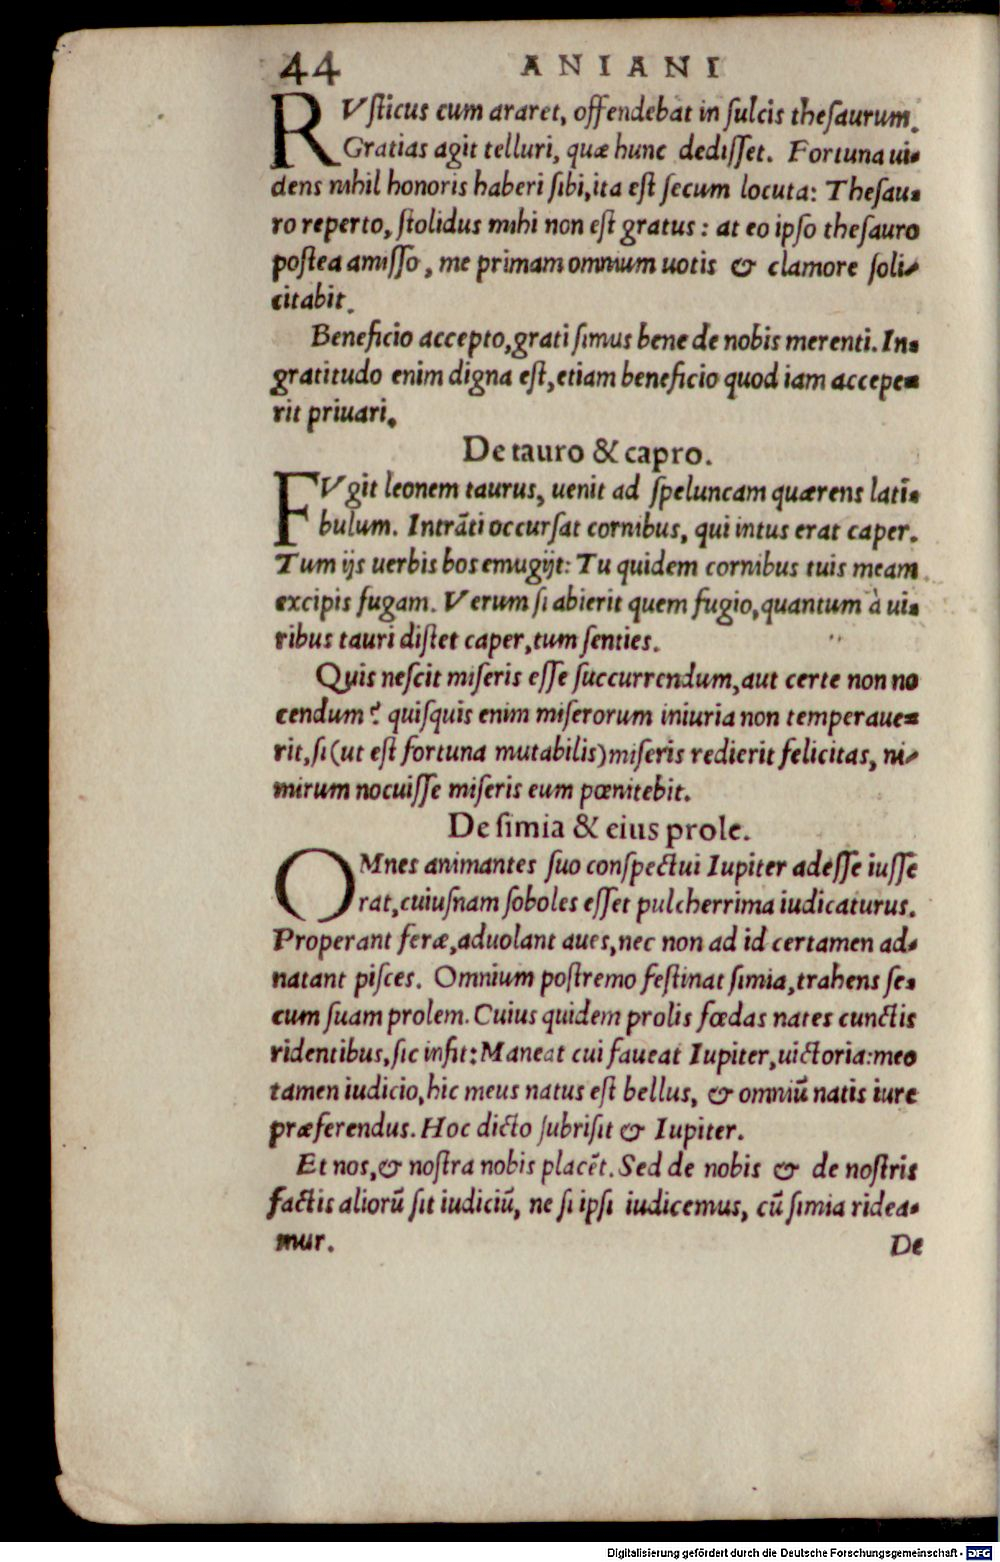 44 ANIANI
RVſticus cum araret, offendebat in ſulcis theſaurum.
Gratias agit telluri, quæ hunc dediſſet. Fortuna ui-
dens nihil honoris haberi ſibi, ita eſt ſecum locuta: Theſau-
ro reperto, ſtolidus mihi non eſt gratus: at eo ipſo theſauro
poſtea amiſſo, me primam omnium uotis & clamore ſoli-
citabit.
Beneficio accepto, grati ſimus bene de nobis merenti. In-
gratitudo enim digna eſt, etiam beneficio quod iam accepe-
rit priuari.
De tauro & capro.
FVgit leonem taurus, uenit ad ſpeluncam quærens lati-
bulum. Intrãti occurſat cornibus, qui intus erat caper.
Tum ijs uerbis bos emugijt: Tu quidem cornibus tuis meam
excipis fugam. Verum ſi abierit quem fugio, quantum à ui-
ribus tauri diſtet caper, tum ſenties.
Quis neſcit miſeris eſſe ſuccurrendum, aut certe non no
cendum? quiſquis enim miſerorum iniuria non temperaue-
rit, ſi (ut eſt fortuna mutabilis) miſeris redierit felicitas, ni-
mirum nocuiſſe miſeris eum pœnitebit.
De ſimia & eius prole.
OMnes animantes ſuo conſpectui Iupiter adeſſe iuſſe
rat, cuiuſnam ſoboles eſſet pulcherrima iudicaturus.
Properant feræ, aduolant aues, nec non ad id certamen ad-
natant piſces. Omnium poſtremo feſtinat ſimia, trahens ſe-
cum ſuam prolem. Cuius quidem prolis fœdas nates cunctis
ridentibus, ſic infit: Maneat cui faueat Iupiter, uictoria: meo
tamen iudicio, hic meus natus eſt bellus, & omniũ natis iure
præferendus. Hoc dicto ſubriſit & Iupiter.
Et nos, & noſtra nobis placẽt. Sed de nobis & de noſtris
factis aliorũ ſit iudiciũ, ne ſi ipſi iudicemus, cũ ſimia ridea-
mur. De
Digitalisierung gefördert durch die Deutsche Forschungsgemeinschaft - DFG